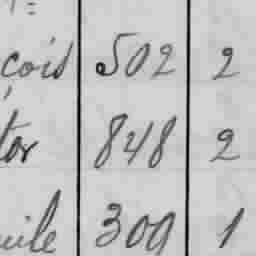 çois 502 2
tor 848 2
uile 309 1